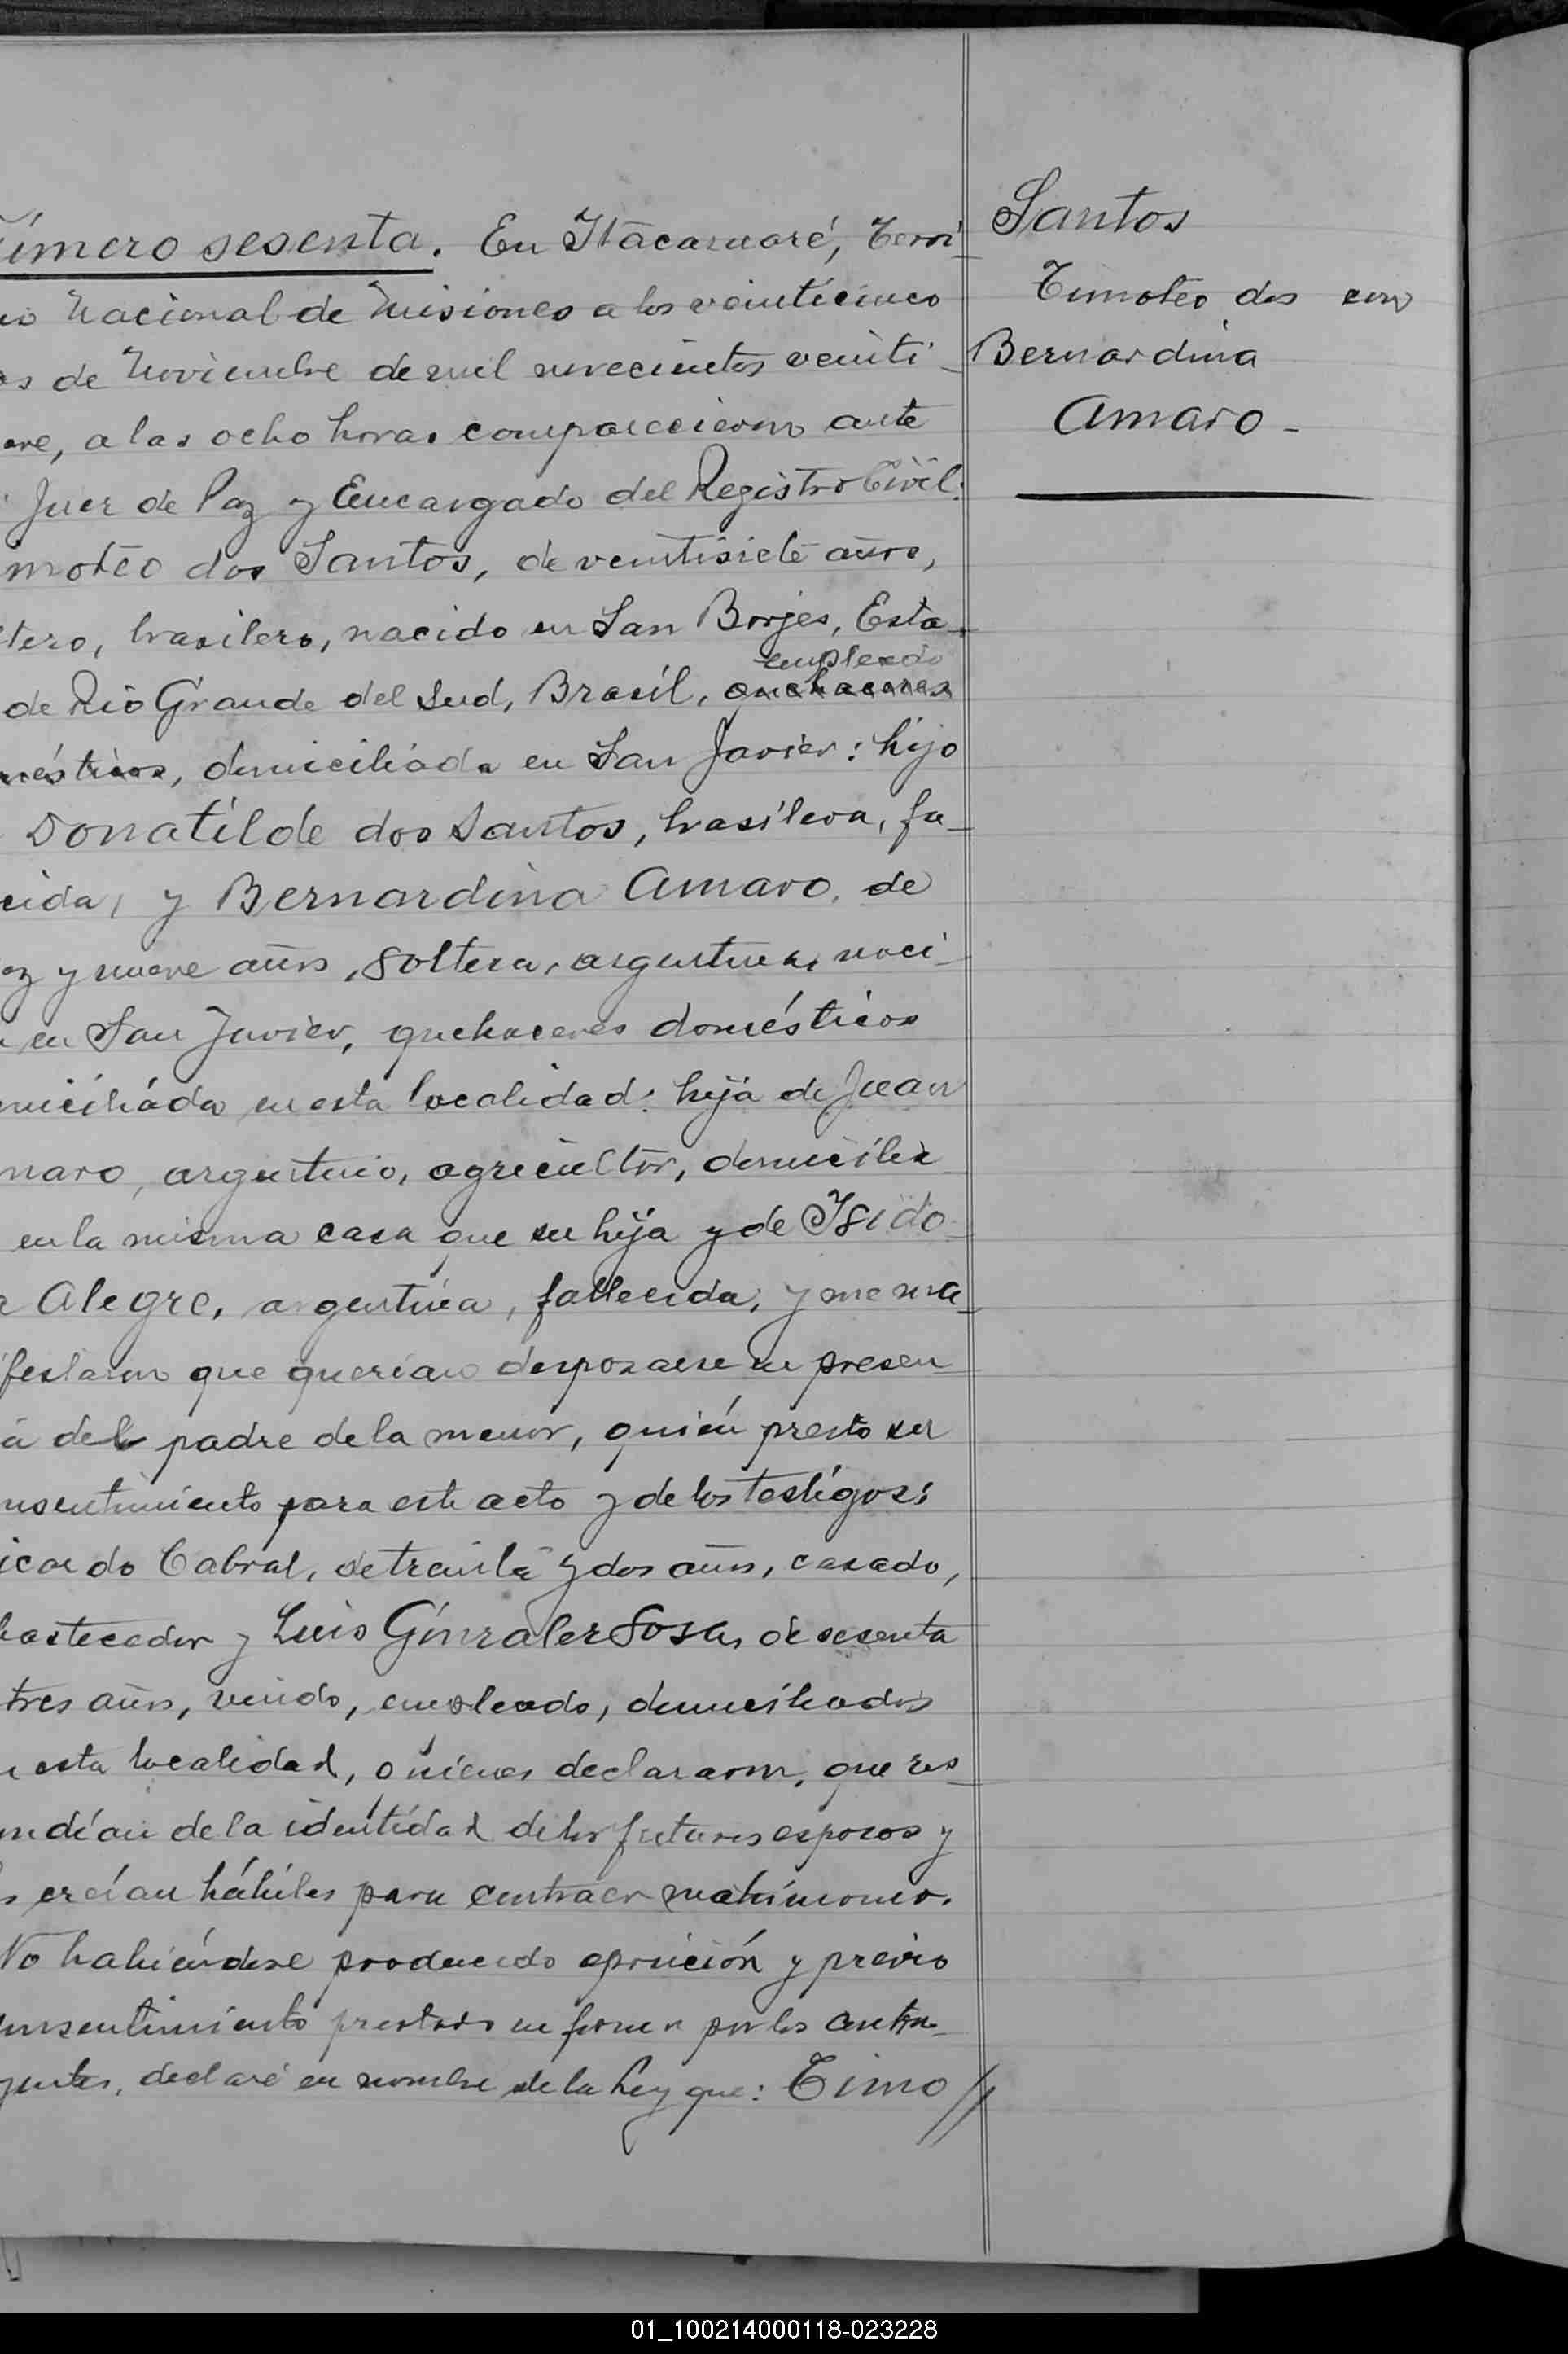 úmero sesenta. En Itacaruaré, Terri-
io Nacional de Misiones a los veinticinco
as de Noviembre de mil novecientos veinti-
eve, a las ocho horas comparecieron ante
Juez de Paz y Encargado del Registro Civil:
imoteo dos Santos, de veintisiete años,
ltero, brasilero, nacido en San Borjes, Esta-
empleado
de Rio Grande del Sud, Brasíl, quehaceres
mésticos, domiciliado en San Javier: hijo
Donatilde dos Santos, brasilera, fa-
cida, y Bernardina Amaro, de
ez y nueve años, soltera, argentina, naci-
a en San Javier, quehaceres domésticos
miciliáda en esta localidad: hija de Juan
maro, argentino, agricultor, domicilia
en la misma casa que su hija y de Isido-
a Alegre, argentina, fallecida; y me ma-
ifestaron que querian desposarse en presen-
ia del padre de la menor, quién presto su
nsentimiento para este acto y de los testigos:
icardo Cabral, de treinta y dos años, casado,
bastecedor y Luis Gónzalez Sosa, de sesenta
tres años, viudo, empleado, domiciliados
n esta localidad, quienes declararon, que res-
ondían de la identidad de los futuros esposos y
s creían hábiles para contraer matrimonio.
No habiéndose producido oposición y previo
onsentimiento prestado en forma por los contra-
yentes, declaré en nombre de la Ley que: Timo//
Santos
Timoteo dos con
Bernardina
Amaro -
01_100214000118-023228